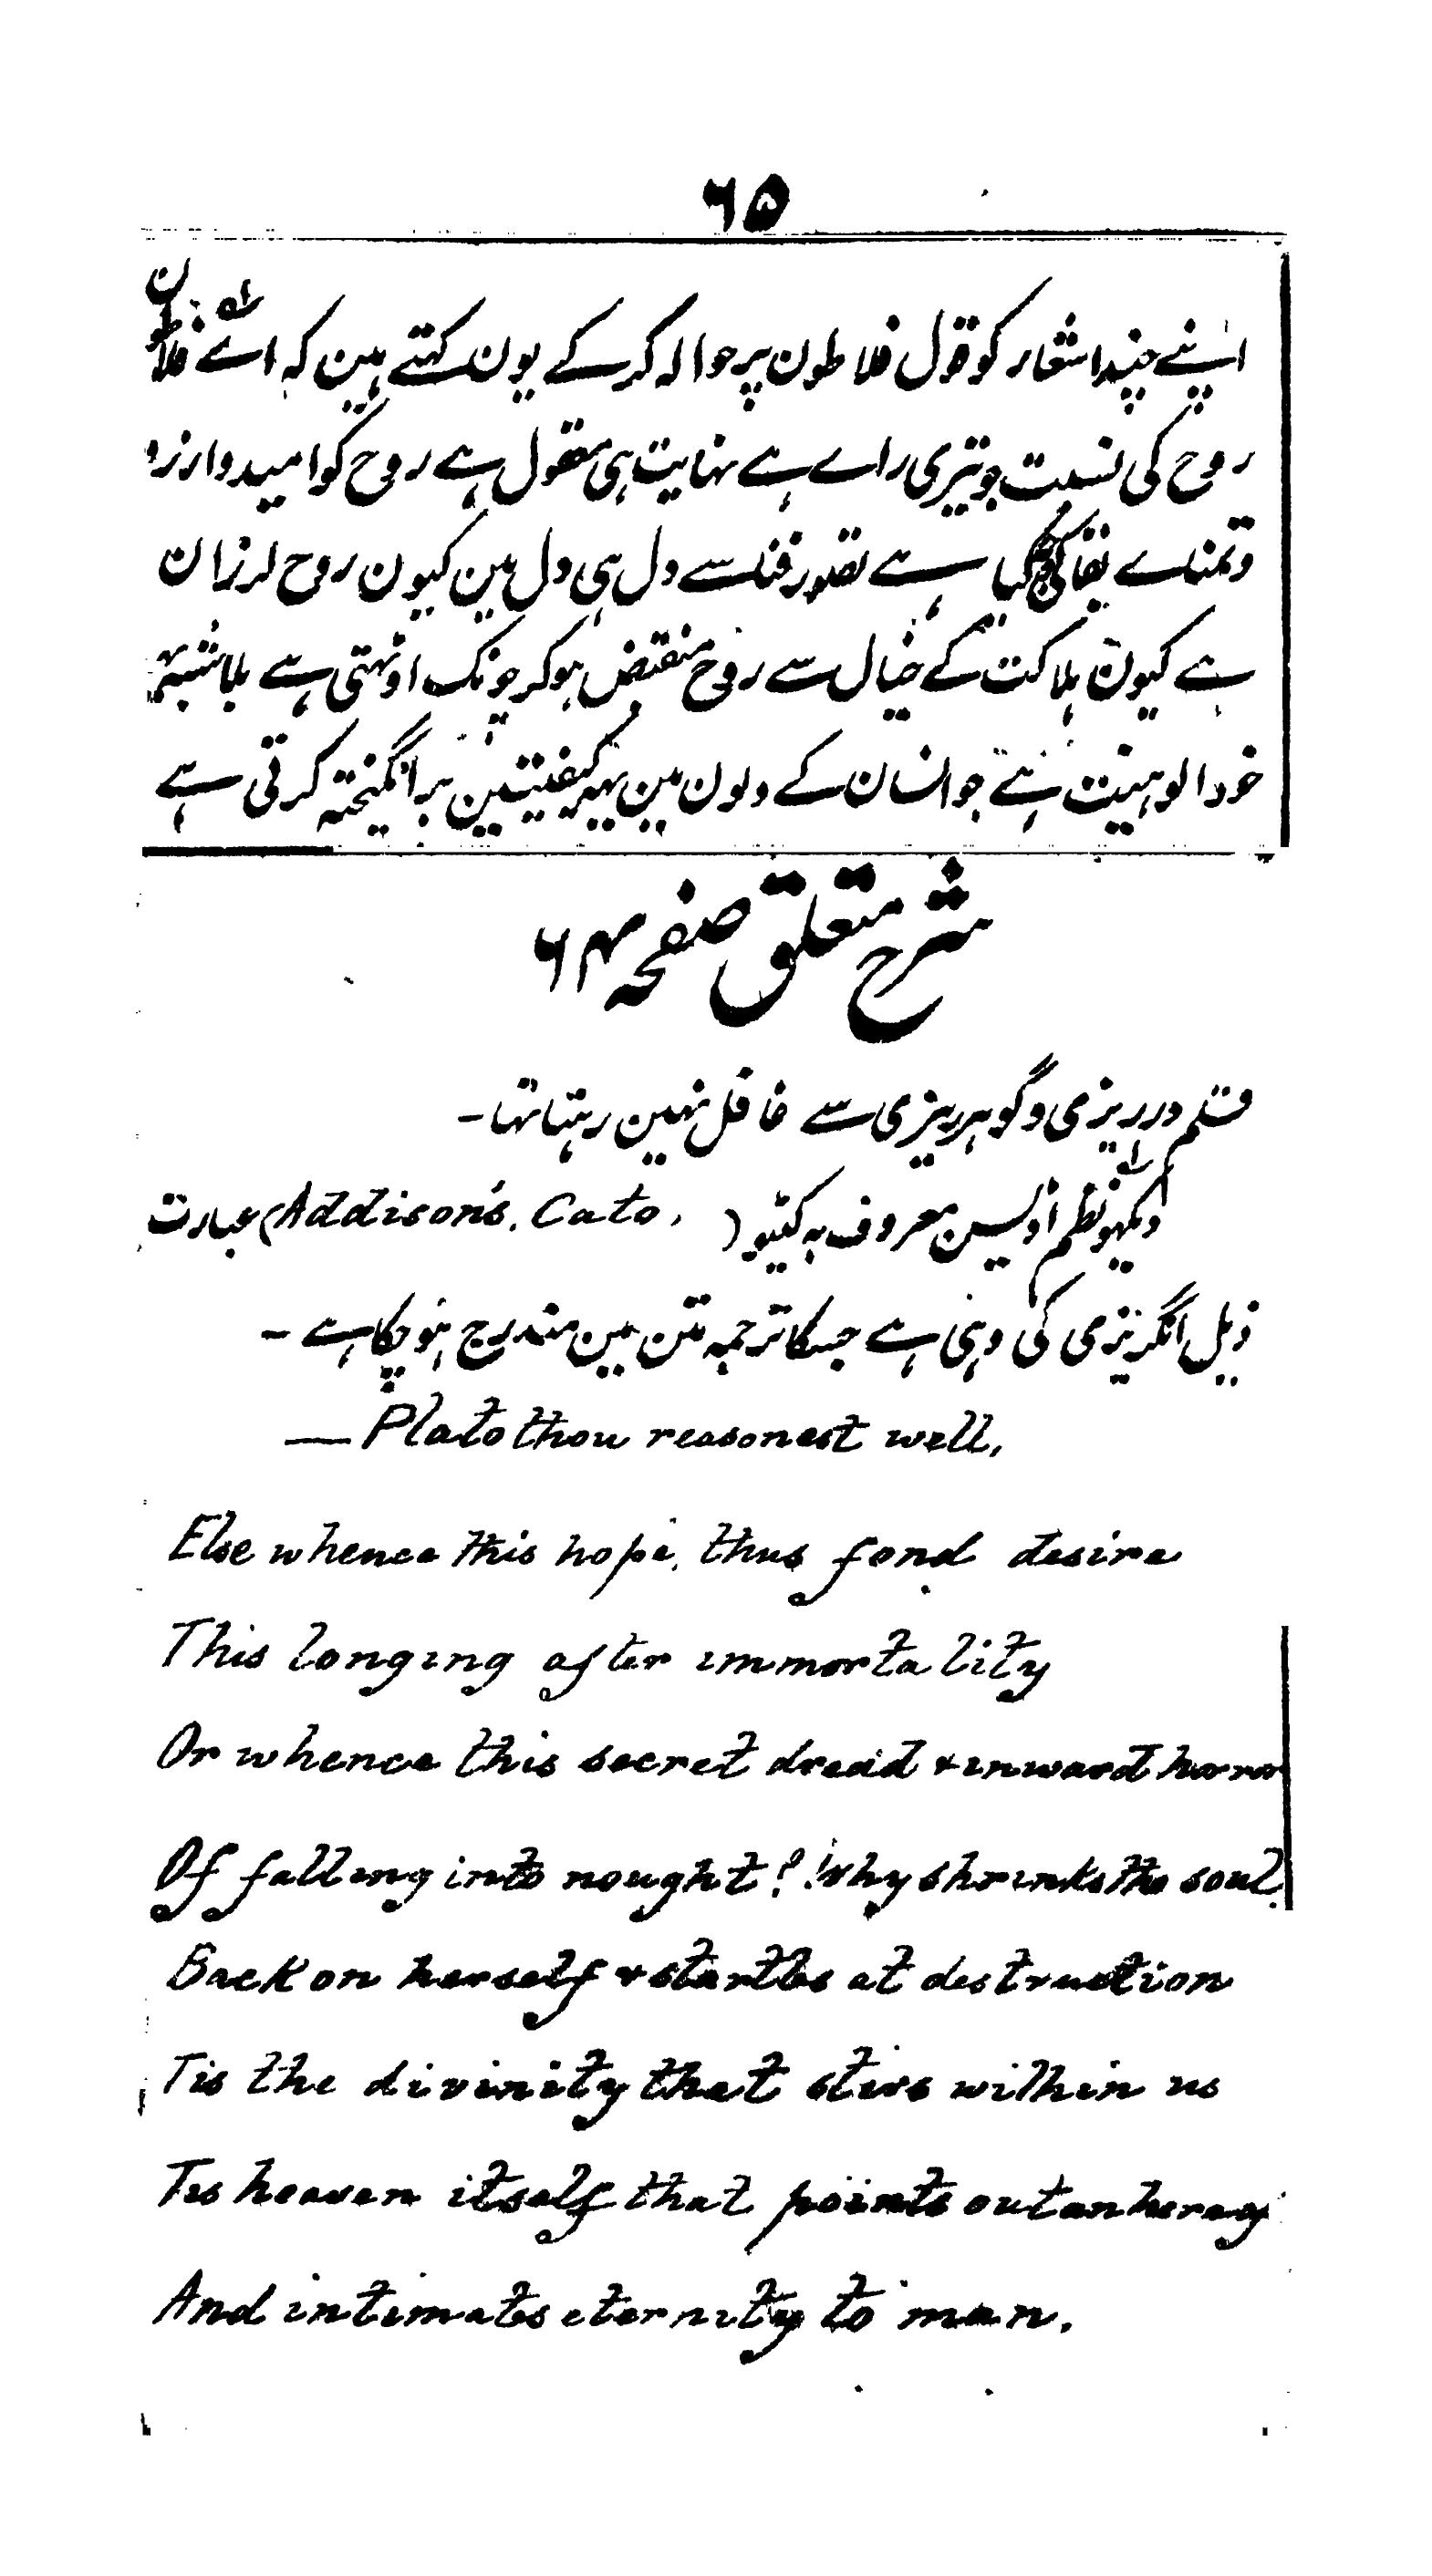 ۶۵
اپنے چند اشعار کو قول فلاطون پر حوالہ کر کے یون کہتے ہین کہ اے فلاطون
روح کی نسبت جو تیری راے ہے نہایت ہی معقول ہے روح کو امید و ارزو
و تمناے بقا کیا ہے تصور فنا سے دل ہی دل مین کیون روح لرزان
ہے کیون ہلاکت کے خیال سے روح منقبض ہو کر چونک اوٹہتی ہے بلاشبہہ
خود الوہیت ہے جو انسان کے دلون مین یہہ کیفیتین برانگیختہ کرتی ہے
شرح متعلق صفحہ ۶۴
قلم درریزی و گوہرریزی سے غافل نہین رہتا تہا۔
دیکہو نظم اڈلیسن معروف بہ کیٹو (Addison's. Cato,) عبارت
ذیل انگریزی کی وہی ہے جسکا ترجمہ متن مین مندرج ہو چکا ہے ۔
— Plato thou reasonest well,
Else whence this hope, thus fond desire
This longing after immortality
Or whence this secret dread & inward horror
Of falling into nought? Why shrinks the soul
Back on herself & startles at destruction
Tis the divinity that stirs within us
Tis heaven itself that points out an
And intimates eternity to man.